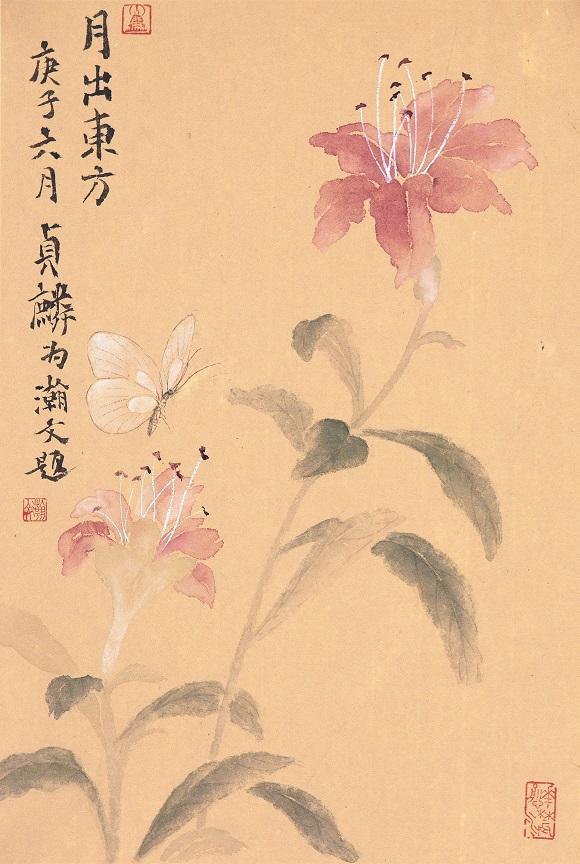 月出東方
庚子六月
貞麟为瀚文題